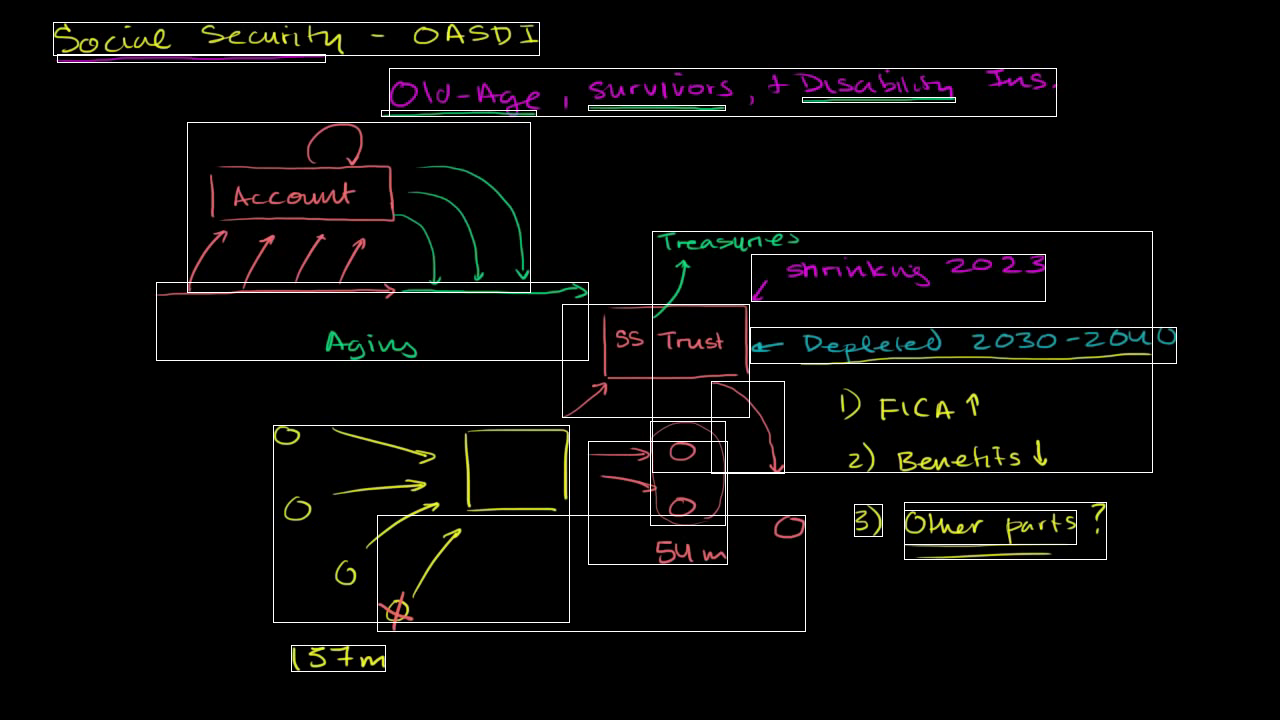 Social Security - OASDI
Old-Age, survivors, + Disability Ins.
Account
Treasuries
shrinking 2023
Aging
SS Trust
Depleted 2030-2040
1) FICA ↑
2) Benefits ↓
3) Other parts ?
54 m
157m